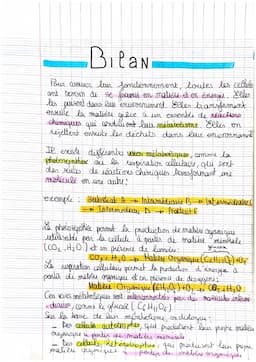 Bilan
Pour assurer leur fonctionnement, toutes les cellules
ont besoin de se fournir en matière et en énergie. Elles
les puisent dans leur environnement. Elles transforment
ensuite la matière grâce à un ensemble de réactions
chimiques qui constituent leur métabolisme. Elles en
rejettent ensuite les déchets dans leur environnement
Il existe différentes voies métaboliques, comme la
photosynthèse ou la respiration cellulaire, qui sont
des suites de réactions chimiques transformant une
molécule en une autre.
exemple : Substrat A → Intermédiaire B → Intermédiaire
→ Intermédiaire D → Produit E
La photosynthèse permet la production de matière organique
utilisable par la cellule à partir de matière minérale
(CO2, H2O) et en présence de lumière :
CO2 + H2O → Matière Organique (C6H12O6)
La respiration cellulaire permet la production d'énergie à
partir de matière organique et en présence de dioxygène :
Matière Organique + O2 → CO2 + H2O
Ces voies métaboliques sont interconnectées par des molécules
comme le glucose (C6H12O6)
Sur la base de leur métabolisme, on distingue :
- Des cellules autotrophes, qui produisent leur propre matière
organique à partir de matière minérale
- Des cellules hétérotrophes, qui produisent leur propre
matière organique à partir de matière organique